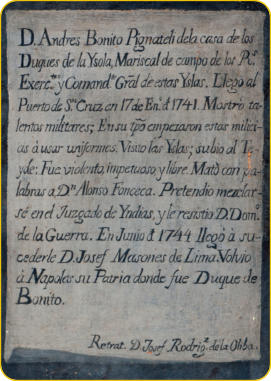 D. Andres Bonito Pignateli dela casa de los
Duques de la Ysola, Mariscal de campo de los Rs.
Exerc.tos y Comand.te Grãl de estas Yslas. Llegó al
Puerto de S.ta Cruz en 17 de En.o đ 1741. Mostró ta-
lentos militares; En su tpõ empezaron estas milici-
as à usar uniformes. Visito las Yslas; subio al Te-
yde: Fue violento, impetuoso, y libre. Matò con pa-
labras a D.n Alonso Fonceca. Pretendio mezclar-
sé en el Juzgado de Yndias, y le resistio D. Dom.o
de la Guerra. En Junio đ 1744 llegò à su-
cederle D. Josef Masones de Lima. Volvió
à Napolas su Patria donde fue Duque de
Bonito.
Retrat. D. Josef Rodrig.z de la Oliba.